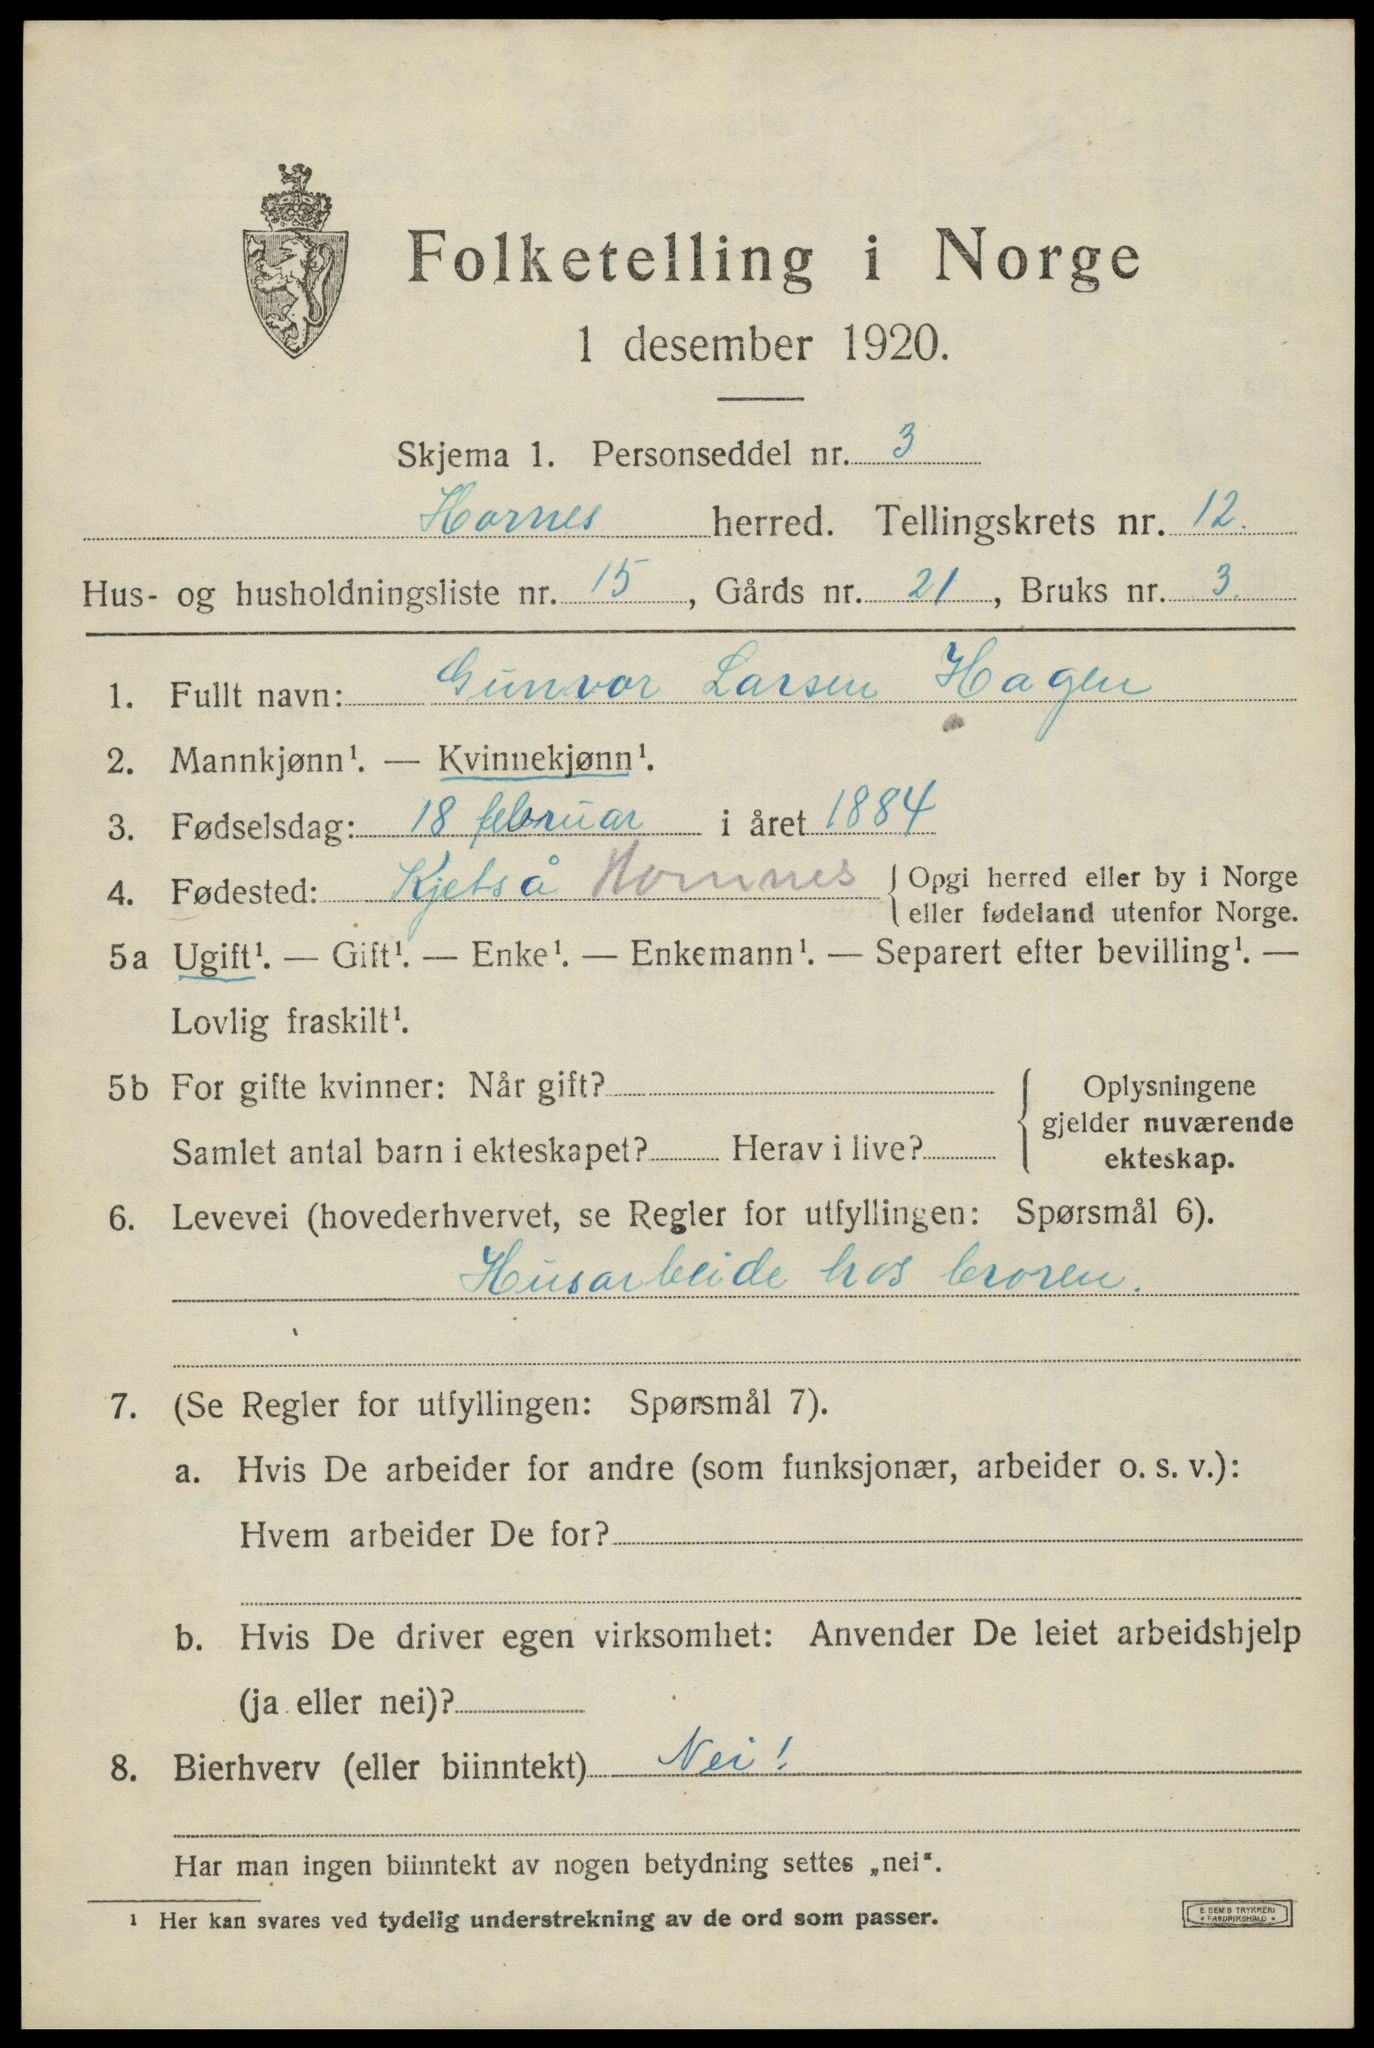 Folketelling i Norge
1 desember 1920.
Skjema 1. Personseddel nr. 3
Hornes herred. Tellingskrets nr. 12.
Hus- og husholdningsliste nr. 15, Gårds nr. 21, Bruks nr. 3.
1. Fullt navn: Gunvor Larsen Hagen
2. Mannkjønn¹. — Kvinnekjønn¹.
3. Fødselsdag: 18 februar i året 1884
4. Fødested: Kjetså Hornnes { Opgi herred eller by i Norge
eller fødeland utenfor Norge.
5a Ugift¹. — Gift¹. — Enke¹. — Enkemann¹. — Separert efter bevilling¹. —
Lovlig fraskilt¹.
5b For gifte kvinner: Når gift?
Samlet antal barn i ekteskapet? Herav i live?
{ Oplysningene
gjelder nuværende
ekteskap.
6. Levevei (hovederhvervet, se Regler for utfyllingen: Spørsmål 6).
Husarbeide hos broren.
7. (Se Regler for utfyllingen: Spørsmål 7).
a. Hvis De arbeider for andre (som funksjonær, arbeider o. s. v.):
Hvem arbeider De for?
b. Hvis De driver egen virksomhet: Anvender De leiet arbeidshjelp
(ja eller nei)?
8. Bierhverv (eller biinntekt) Nei!
Har man ingen biinntekt av nogen betydning settes „nei".
¹ Her kan svares ved tydelig understrekning av de ord som passer.
E. SEM'S TRYKKERI
* FREDRIKSHALD *